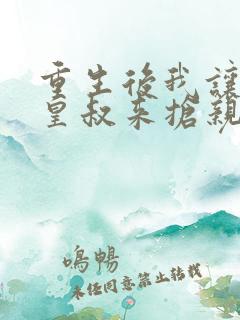 重生後我讓
皇叔來搶親
鳴暢
未經同意禁止轉載